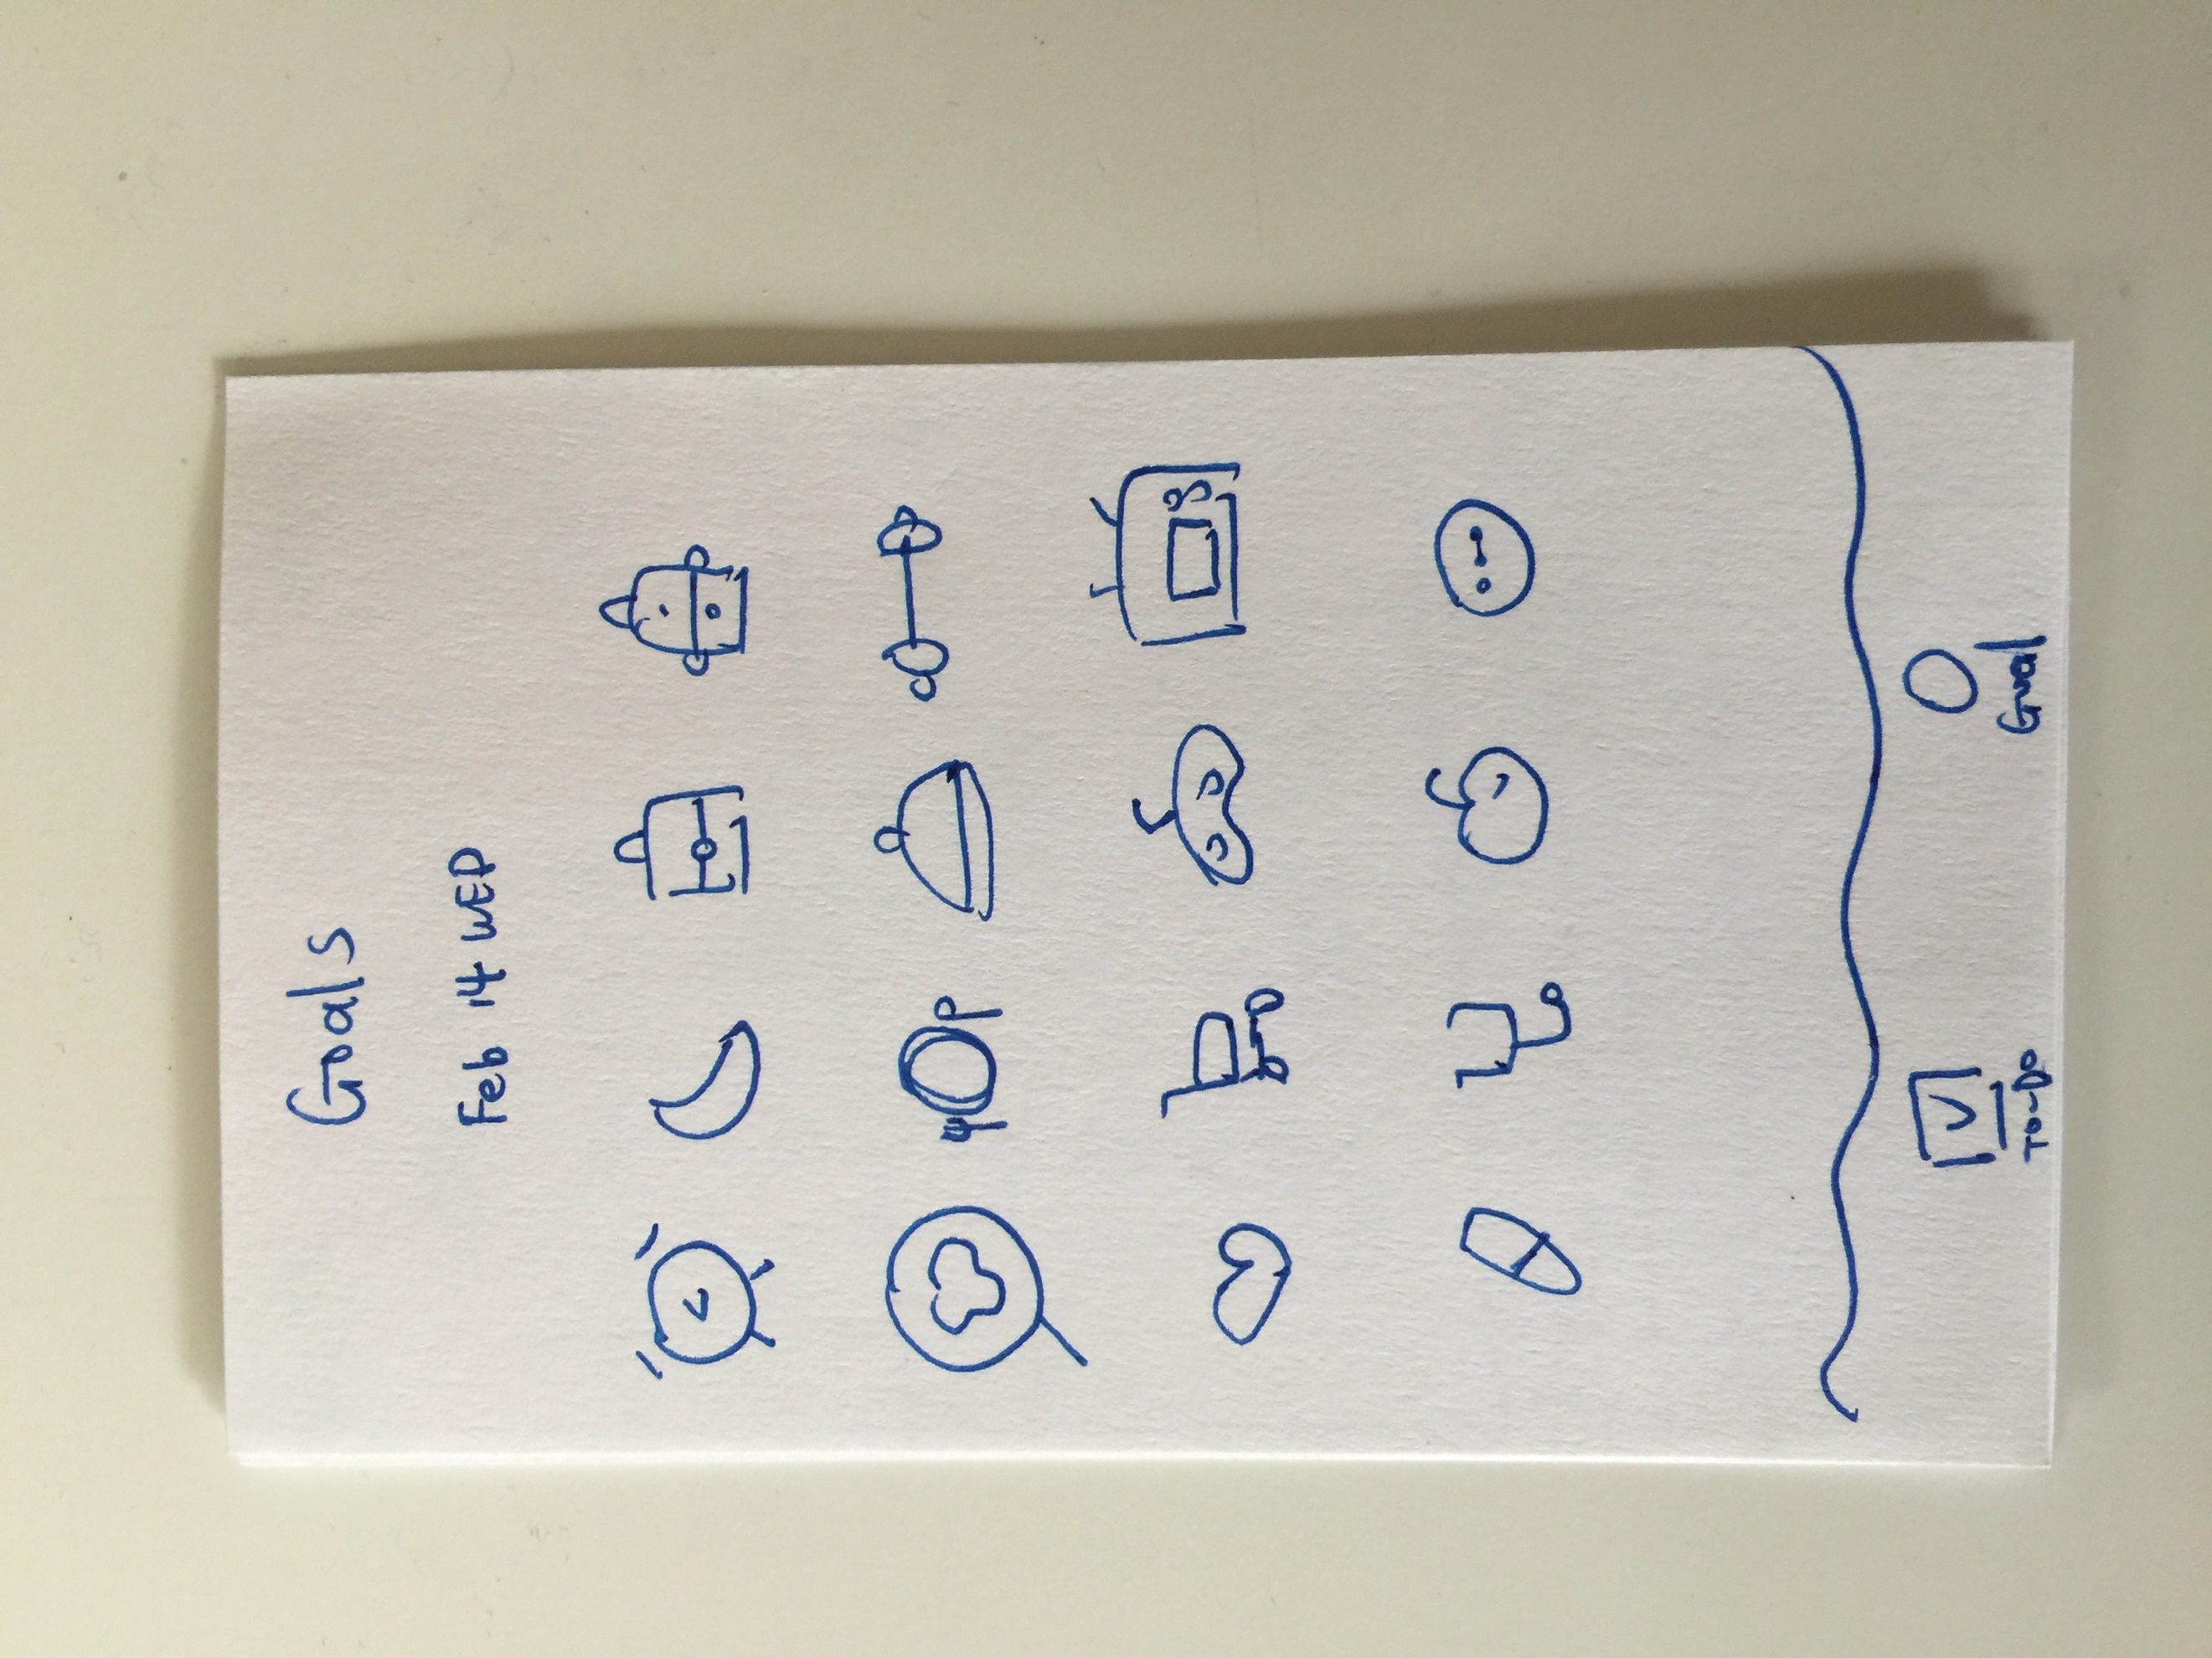 Goals
Feb 14 WED
To-Do
Goal